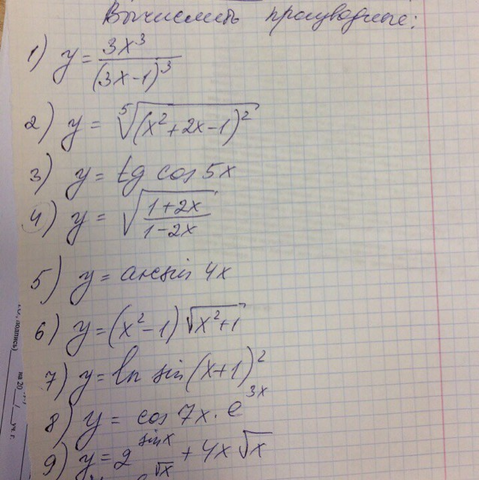 Вычислить производные:
1) y = 3x³/(3x-1)³
2) y = ⁵√(x²+2x-1)²
3) y = tg cos 5x
4) y = √((1+2x)/(1-2x))
5) y = arcsin 4x
6) y = (x²-1) √(x²+1)
7) y = ln sin (x+1)²
8) y = cos 7x · e^(3x)
9) y = 2^(sin x) + 4x √x